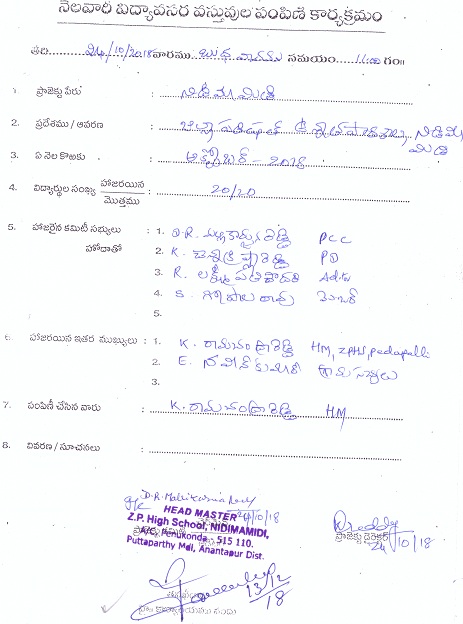 నెలవారీ విద్యావసర వస్తువుల పంపిణీ కార్యక్రమం
తేది 24/10/2018 వారము బుధ వారము సమయం 11:00 గం॥
1. ప్రాజెక్టు పేరు : నిడిమామిడి
2. ప్రదేశము / ఆవరణ : జిల్లా పరిషత్ ఉన్నత పాఠశాల, నిడిమామిడి
3. ఏ నెల కొఱకు : అక్టోబర్ - 2018
4. విద్యార్థుల సంఖ్య హాజరయిన / మొత్తము : 20/20
5. హాజరైన కమిటీ సభ్యులు హోదాతో : 1. D.R. మల్లికార్జున రెడ్డి PCC
2. K. రెడ్డి PD
3. R. లక్ష్మీపతి
4. K. గోపాల రావు మెంబర్
5.
6. హాజరయిన ఇతర ముఖ్యులు : 1. K. రామచంద్రారెడ్డి HM, ZPHS, Pedapalli
2. E. నవీన్ కుమార్ గ్రామస్థులు
3.
7. పంపిణీ చేసిన వారు : K. రామచంద్రారెడ్డి HM
8. వివరణ / సూచనలు :
D.R. Mallikarjuna Reddy
24/10/18
HEAD MASTER
Z.P. High School, NIDIMAMIDI,
A/C, Penukonda - 515 110.
Puttaparthy Mdl, Anantapur Dist.
Dreddy
ప్రాజెక్టు డైరెక్టర్
24/10/18
13/12/18